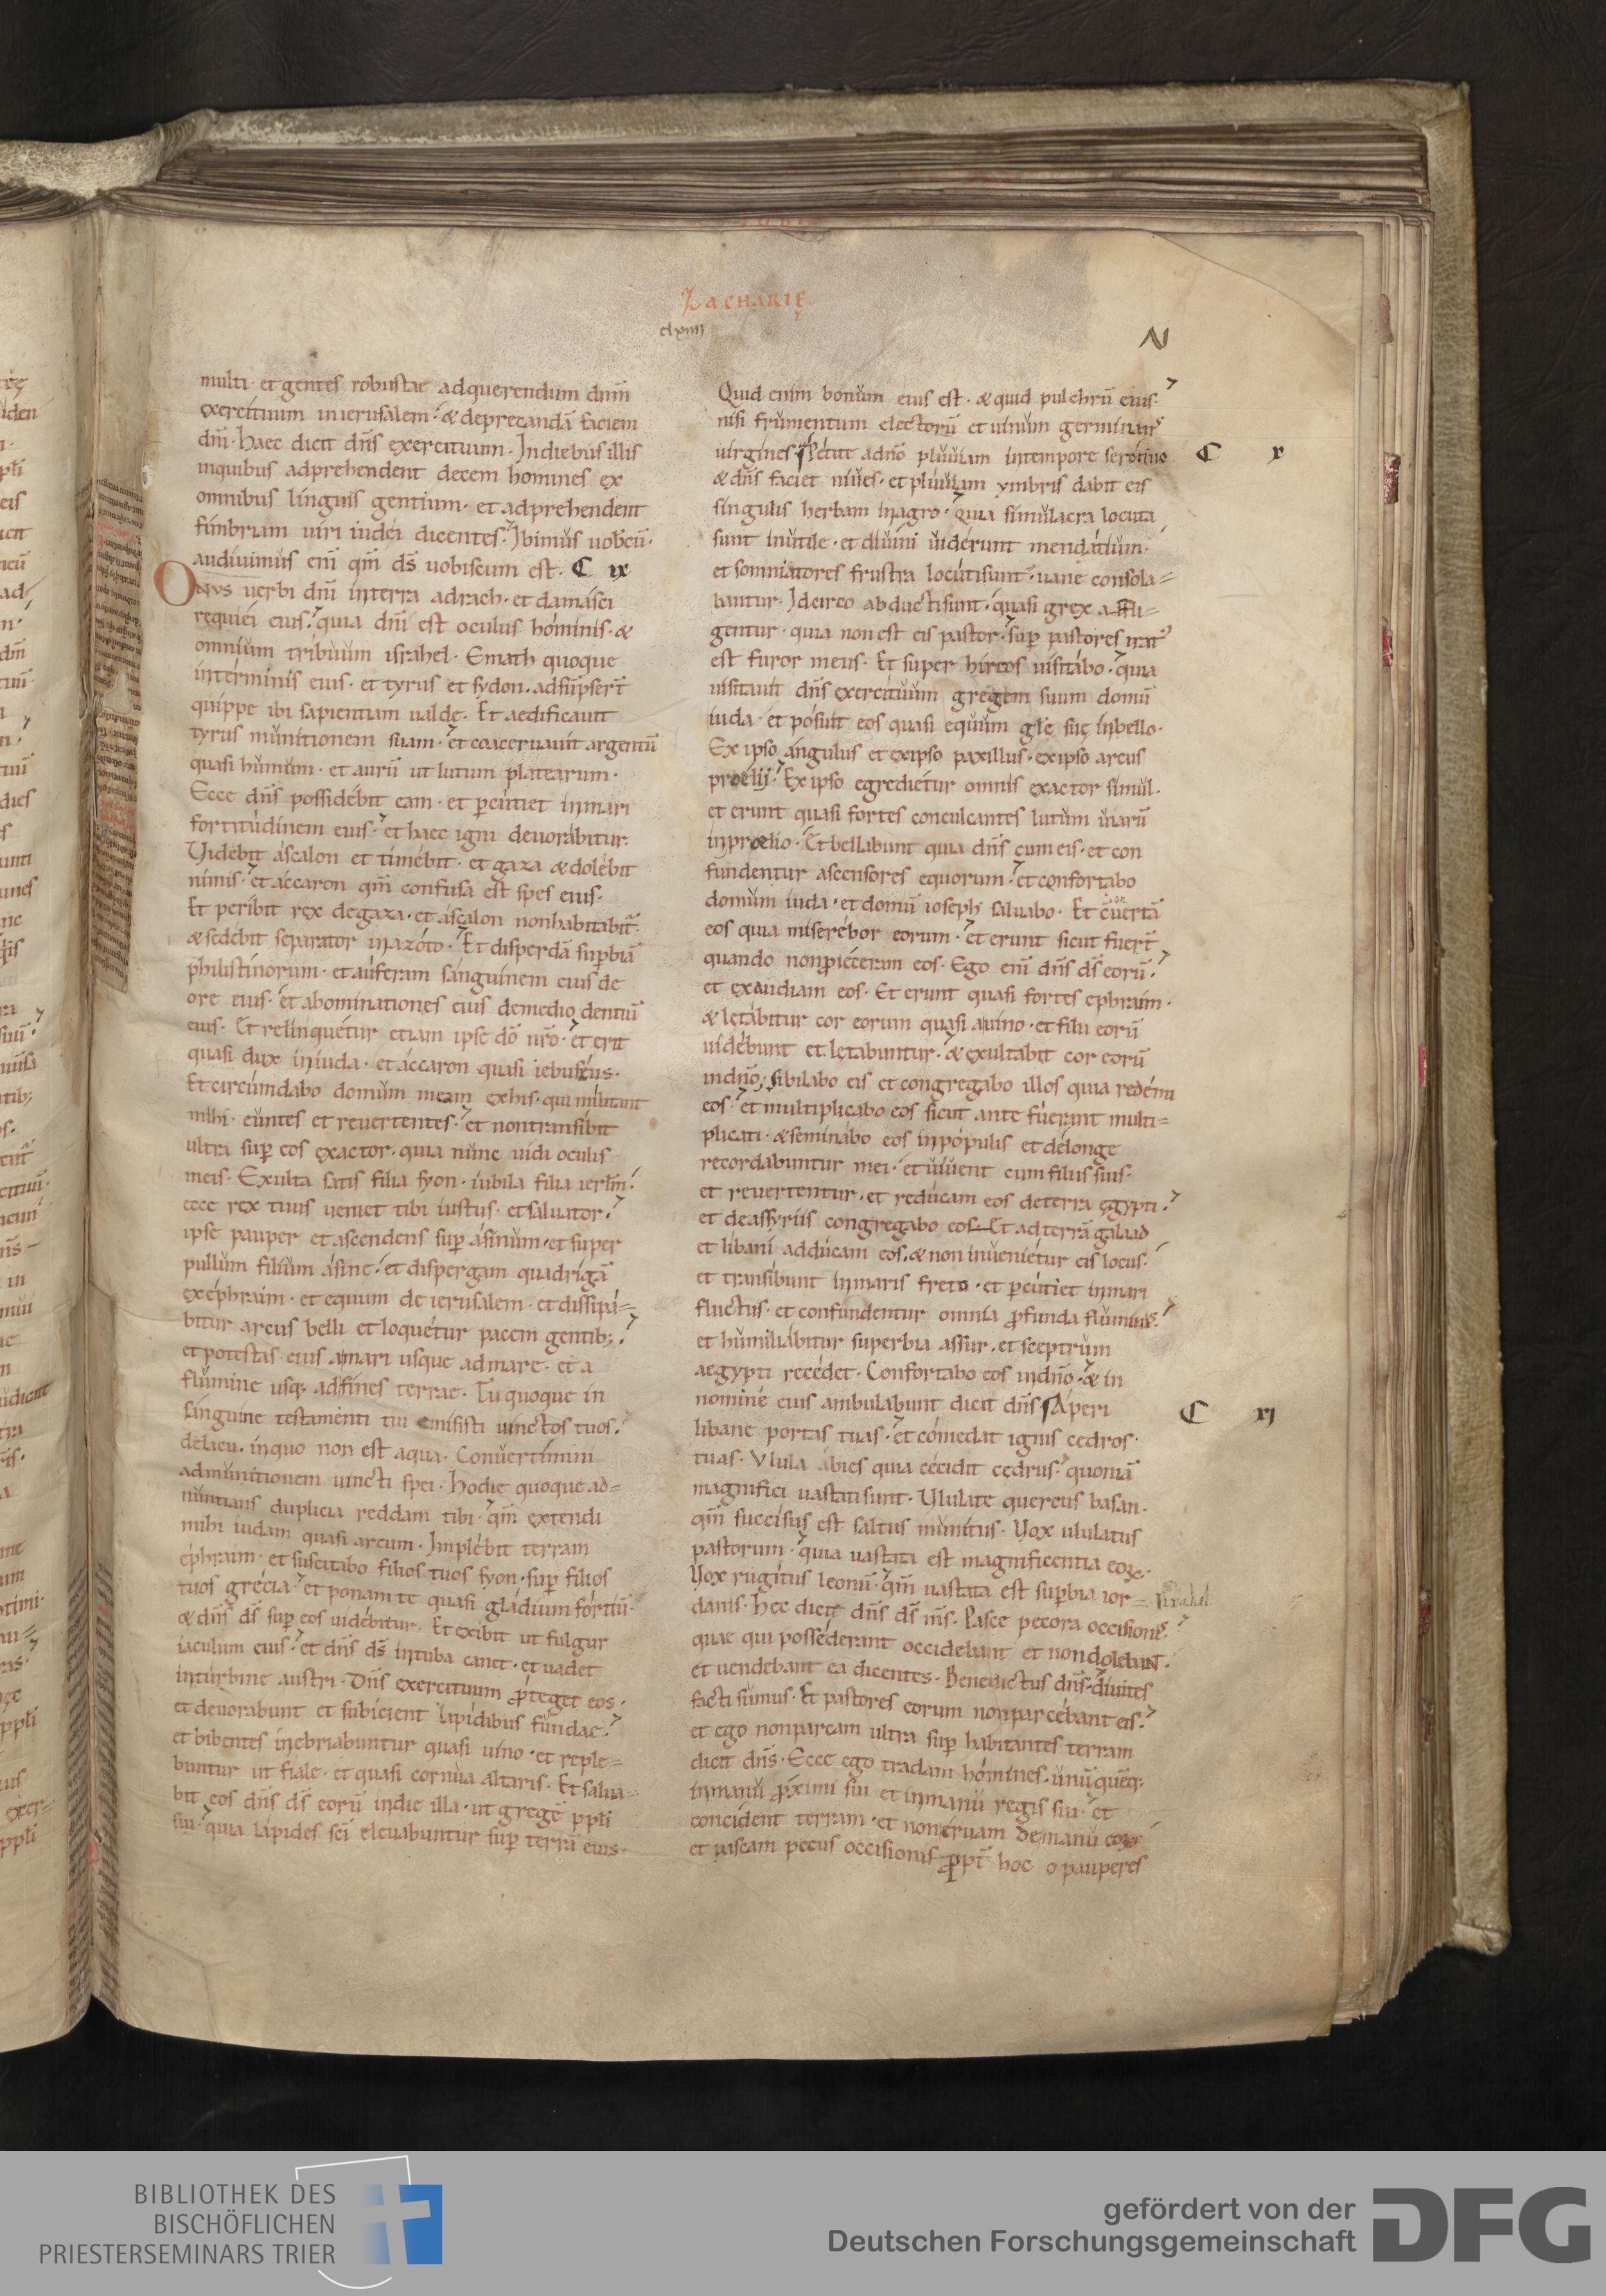 Zacharię
clxiiii
N
multi· et gentes robustae adquerendum dnm̄
exercituum inierusalem· & deprecandā faciem
dn̄i· Haec dicit dn̄s exercituum· Indiebus illis
inquibus adprehendent decem homines ex
omnibus linguis gentium· et adprehendent
fimbriam uiri iudei dicentes· Ibimus uobcū·
audiuimus eni qm̄ ds̄ uobiscum est· C ix
Onus uerbi dn̄i interra adrach· et damasci
requiei eius· quia dn̄i est oculus hominis· &
omnium tribuum israhel· Emath quoque
interminis eius· et tyrus et sydon· adsūpsert̄
quippe ibi sapientiam ualde· Et aedificauit
tyrus munitionem suam· et coaceruauit argentū
quasi humum· et aurū ut lutum platearum·
Ecce dn̄s possidebit eam· et p̄cutiet inmari
fortitudinem eius· et haec igni deuorabitur·
Uidebit ascalon et timebit· et gaza & dolebit
nimis· et accaron qm̄ confusa est spes eius·
Et peribit rex degaza· et ascalon nonhabitabit̄·
& sedebit separator inazoto· Et disperdā sup̄biā
philistinorum· et auferam sanguinem eius de
ore eius· et abominationes eius demedio dentiū
eius· Et relinquetur etiam ipse dō nr̄o· et erit
quasi dux iniuda· et accaron quasi iebuseus·
Et circumdabo domum meam exhis· qui militant
mihi· euntes et reuertentes· et nontransibit
ultra sup̄ eos exactor· quia nunc uidi oculis
meis· Exulta satis filia syon· iubila filia ierlm̄·
ecce rex tuus ueniet tibi iustus· et saluator·
ipse pauper et ascendens sup̄ asinum· et super
pullum filium asine· et dispergam quadrigā
exephraim· et equum de ierusalem· et dissipa=
bitur arcus belli et loquetur pacem gentib;·
et potestas eius amari usque admare· et a
flumine usq; adfines terrae· Tu quoque in
sanguine testamenti tui emisisti uinctos tuos·
delacu· inquo non est aqua· Conuertimini
admunitionem uincti spei· Hodie quoque ad=
nuntians duplicia reddam tibi· qm̄ extendi
mihi iudam quasi arcum· Impleuit terram
ephraim· et suscitabo filios tuos syon· sup̄ filios
tuos grecia· et ponam te quasi gladium fortiū·
& dn̄s ds̄ sup̄ eos uidebitur· Et exibit ut fulgur
iaculum eius· et dn̄s ds̄ intuba canet· et uadet
inturbine austri· Dn̄s exercituum p̄teget eos·
et deuorabunt et subicient lapidibus fundae·
et bibentes inebriabuntur quasi uino· et reple=
buntur ut fiale· et quasi cornua altaris· Et salua=
bit eos dn̄s ds̄ eorū indie illa· ut gregē pp̄li
sui· quia lapides sc̄i eleuabuntur sup̄ terrā eius·
Quid enim bonum eius est· & quid pulchrū eius·
nisi frumentum electorū et uinum germinans
uirgines· Petite adn̄o pluuiam intempore serotino C x
& dn̄s faciet niues· et pluuiam ymbris dabit eis
singulis herbam inagro· Quia simulacra locuta
sunt inutile· et diuini uiderunt mendatium·
et somniatores frustra locutisunt· uane consola=
bantur· Idcirco abductisunt· quasi grex affli=
gentur· quia non est eis pastor· sup̄ pastores irat̄
est furor meus· Et super hircos uisitabo· quia
uisitauit dn̄s exercituum gregem suum domū
iuda· et posuit eos quasi equum gl̄e suę inbello·
Ex ipso angulus et exipso paxillus· exipso arcus
proelij· Ex ipso egredietur omnis exactor simul·
et erunt quasi fortes conculcantes lutum uiarū
inproelio· Et bellabunt quia dn̄s cum eis· et con
fundentur ascensores equorum· et confortabo
domum iuda· et domū ioseph saluabo· Et cūertā
eos quia miserebor eorum· et erunt sicut fuert̄
quando nonp̄ieceram eos· Ego eni dn̄s ds̄ eorū·
et exaudiam eos· Et erunt quasi fortes ephraim·
& lętabitur cor eorum quasi auino· et filii eorū
uidebunt et lętabuntur· & exultabit cor eorū
indn̄o; sibilabo eis et congregabo illos quia redemi
eos· et multiplicabo eos sicut ante fuerant multi=
plicati· & seminabo eos inpopulis et delonge
recordabuntur mei· et uiuent cum filiis suis·
et reuertentur· et reducam eos deterra ęgypti·
et deassyriis congregabo eos· Et ad terrā galaad
et libani adducam eos· & non inuenietur eis locus·
et transibunt inmaris freto· et p̄cutiet inmari
fluctus· et confundentur omnia p̄funda fluminis·
et humiliabitur superbia assur· et sceptrum
aegypti recedet· Confortabo eos indn̄o· & in
nomine eius ambulabunt dicit dn̄s Aperi C xi
libane portas tuas· et comedat ignis cedros·
tuas· Ulula abies quia cecidit cedrus· quoniā
magnifici uastatisunt· Ululate quercus basan·
qm̄ succisus est saltus munitus· Uox ululatus
pastorum· quia uastata est magnificentia eor̄·
Uox rugitus leonū· qm̄ uastata est sup̄bia ior=
danis· Hec dicit dn̄s ds̄ ms̄· Pasce pecora occisionis·
quae qui possederant occidebant et non dolebant·
et uendebant ea dicentes· Benedictus dn̄s· diuites
facti sumus· Et pastores eorum nonparcebant eis·
et ego nonparcam ultra sup̄ habitantes terram
dicit dn̄s· Ecce ego tradam homines· unūquēq;
inmanu p̄ximi sui et inmanu regis sui· et
concident terram· et noneruam demanu eor̄
et pascam pecus occisionis p̄pt̄ hoc o pauperes
BIBLIOTHEK DES
BISCHÖFLICHEN
PRIESTERSEMINARS TRIER
gefördert von der
Deutschen Forschungsgemeinschaft
DFG